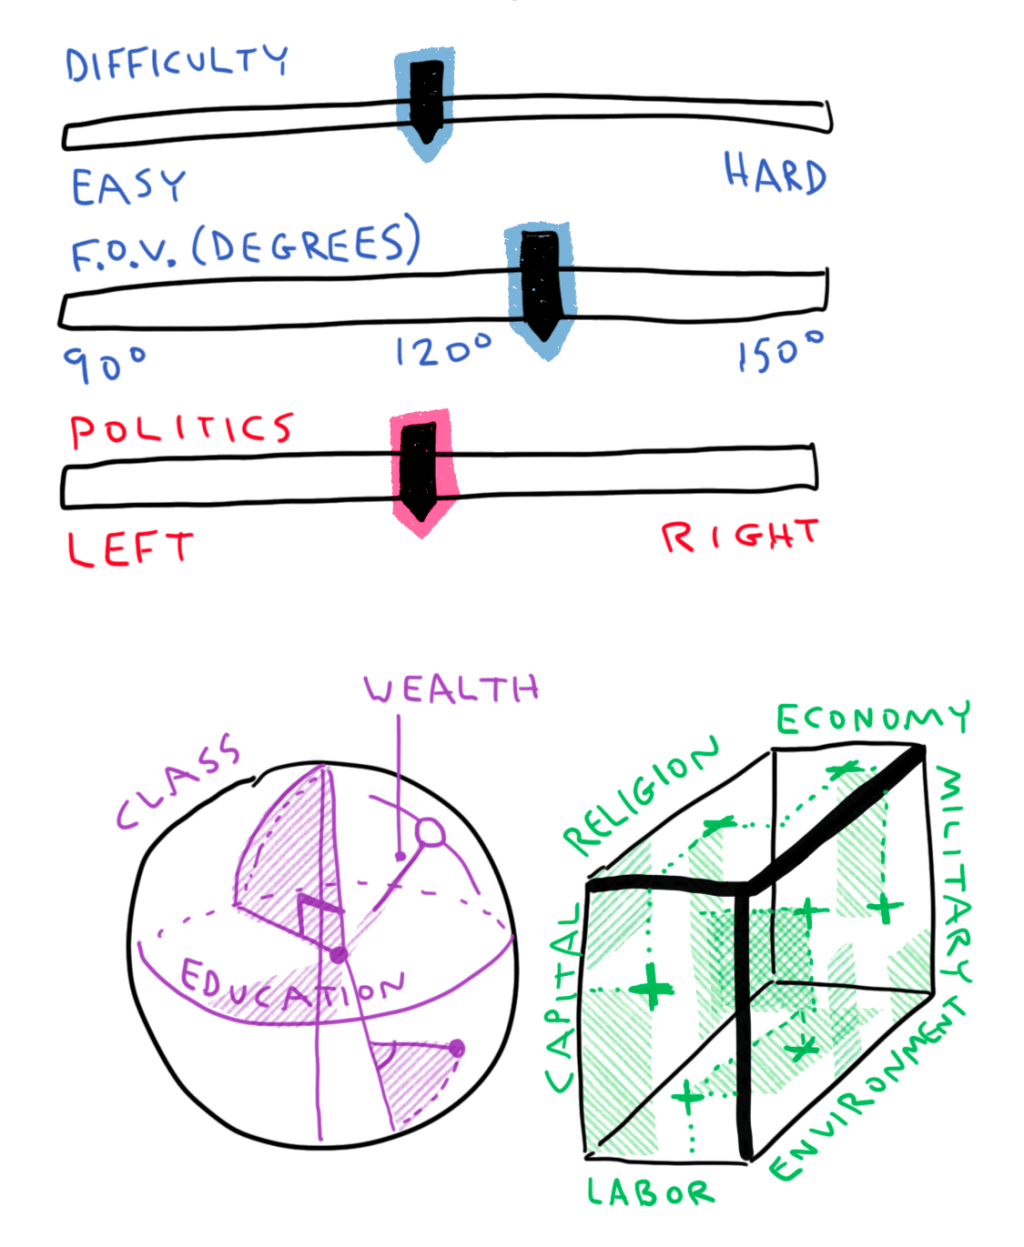 DIFFICULTY
EASY
HARD
F.O.V. (DEGREES)
90°
120°
150°
POLITICS
LEFT
RIGHT
WEALTH
CLASS
EDUCATION
ECONOMY
RELIGION
MILITARY
CAPITAL
ENVIRONMENT
LABOR